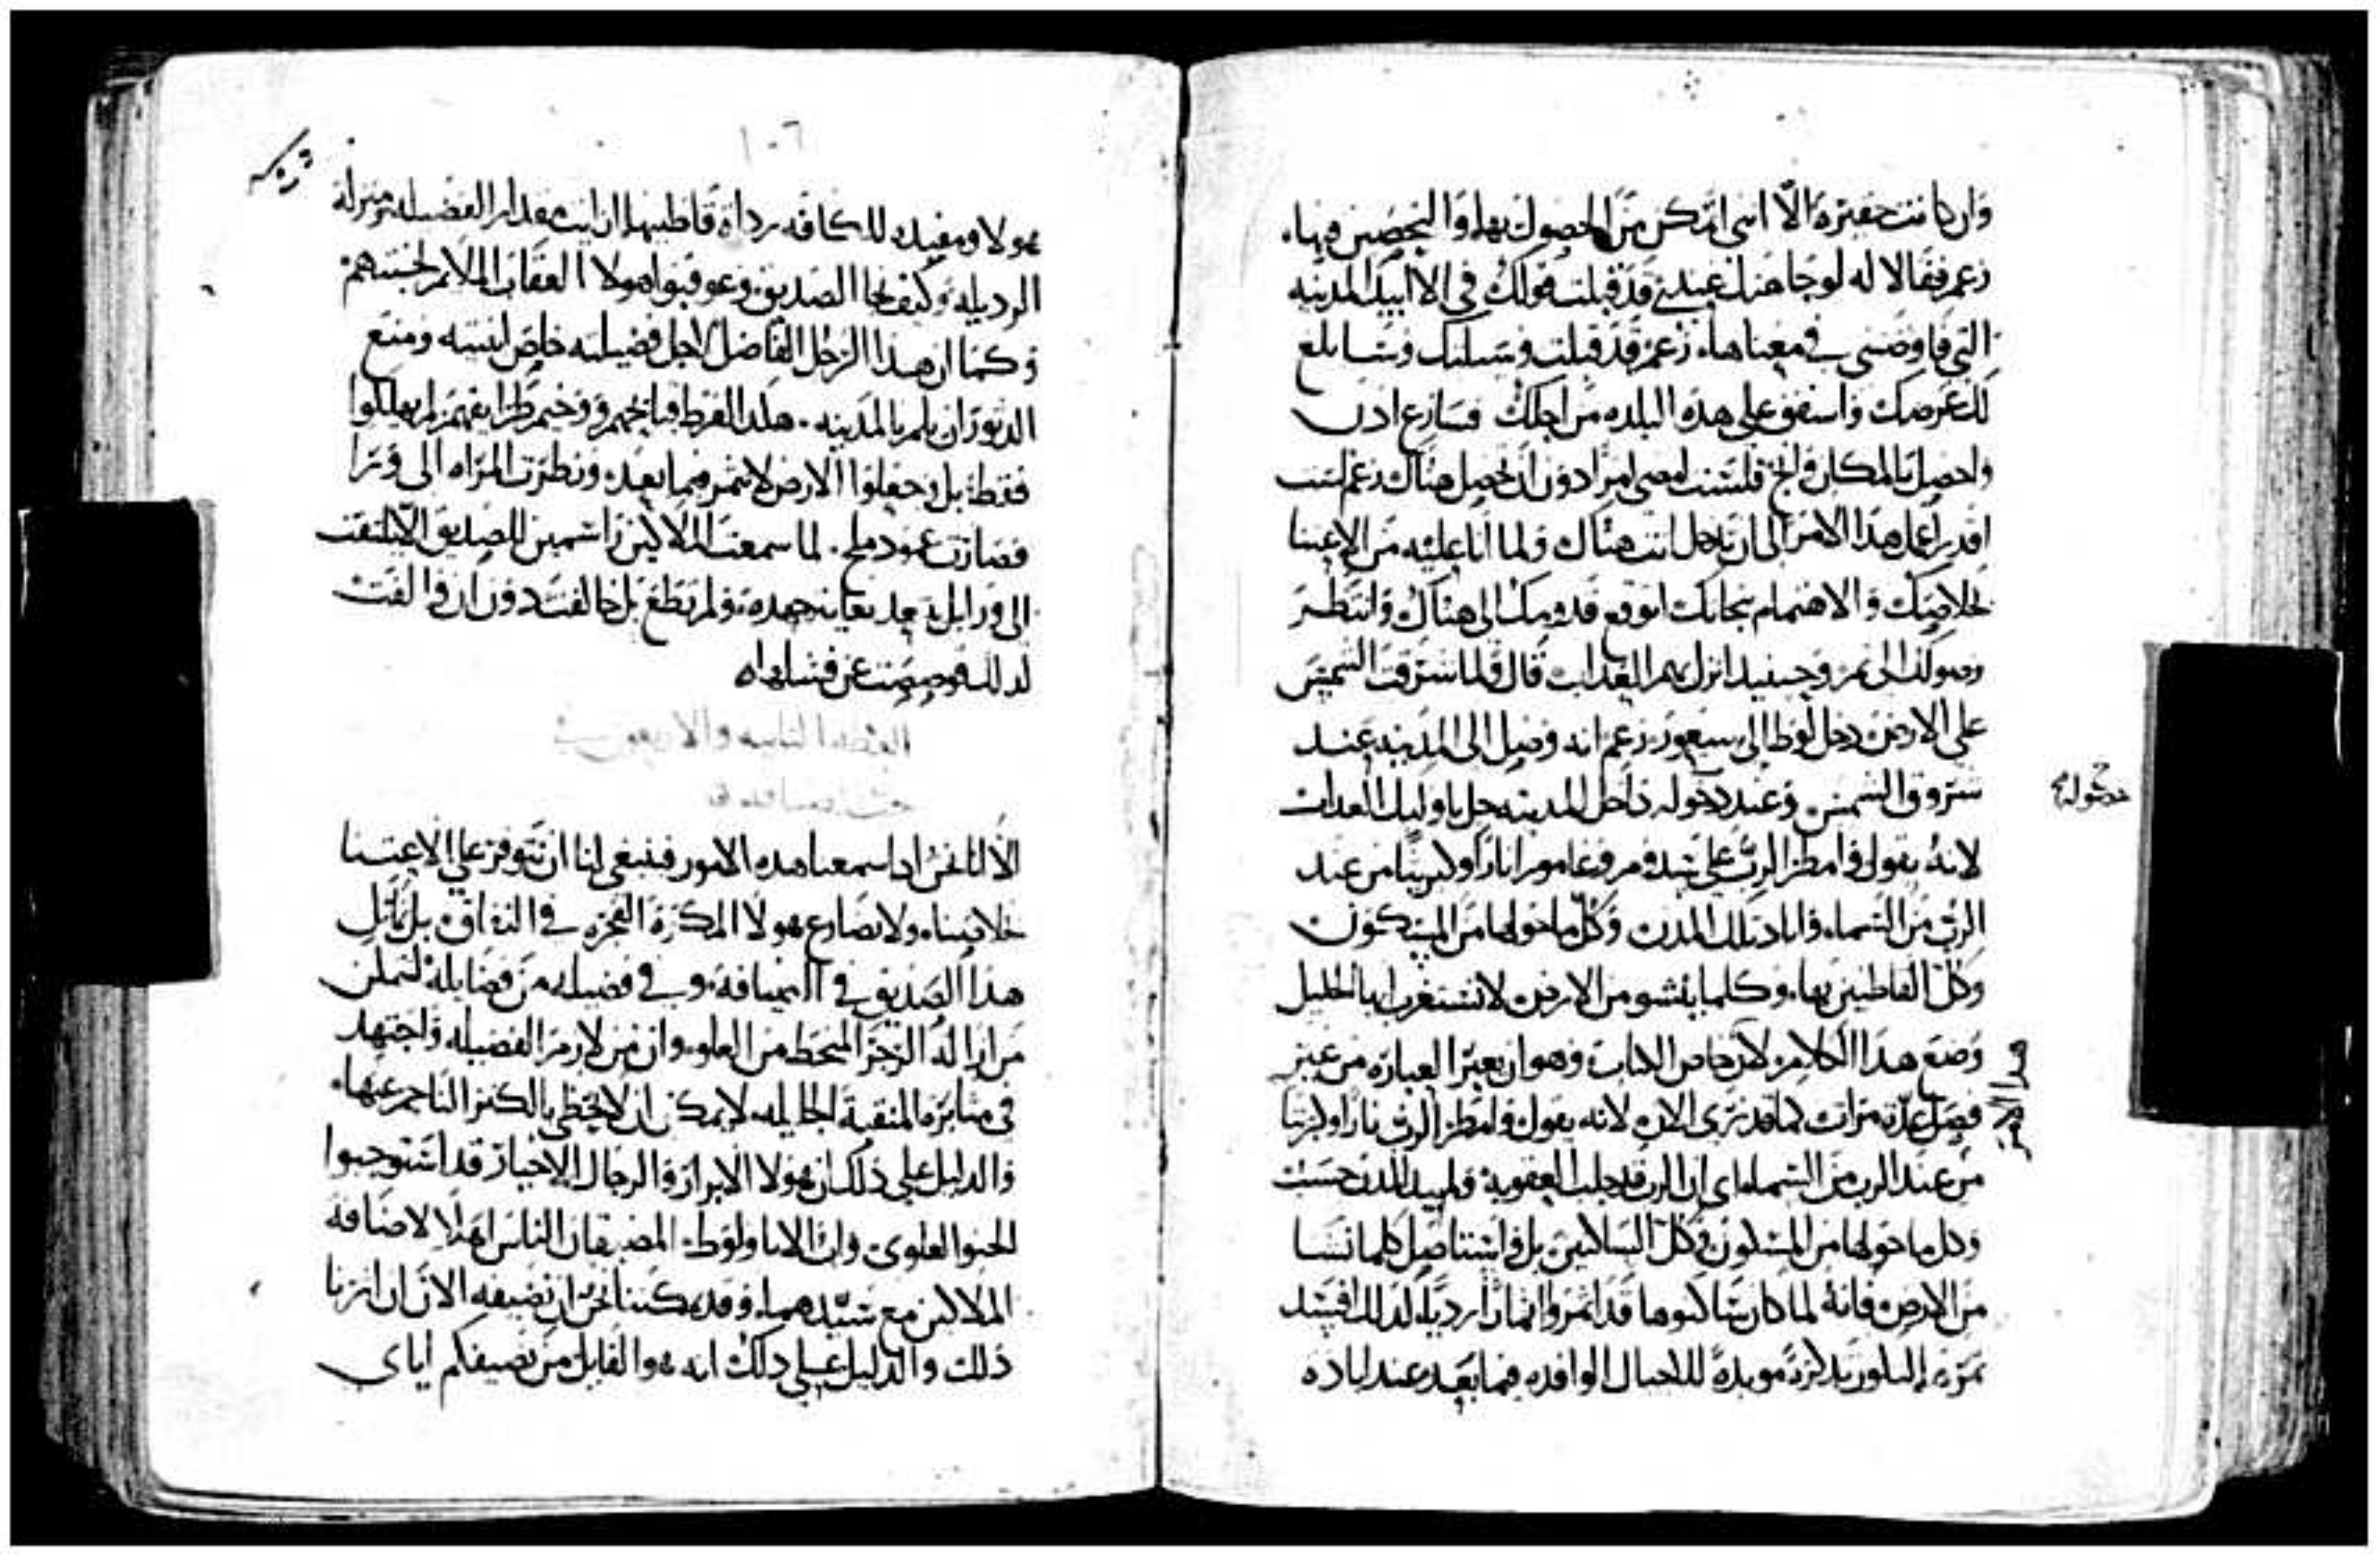 وان كانت حقيره الّا اننى اتمكن من الحصول بها والتحصين فيها.
زعم فقالا له لوجاهتك عندي قد قبلت قولك في الا ابيد المدينه
التي فاوضتني في معناها. زعم قد قبلت وسيلتك وسابلغ
لك غرضك واشفق على هذه البلده من اجلك فسارع اذن
واحصل بالمكان وانج فلست امضي امرا دون ان تحصل هناك زعم لست
اقدر اعمل هذا الامر الى ان تدخل انت هناك ولما انا عليه من الاعتنا
بخلاصك والاهتمام بنجاتك اتوقع قدومك الى هناك وانتظر
وصولك الى ثم وحينيد انزل بهم العذاب قال فلما شرقت الشمس
على الارض دخل لوط الى سيغور زعم انه وصل الى المدينه عند
شروق الشمس وعند دخوله داخل المدينه حل باوليك العذاب
لانه يقول وامطر الرب على سدوم وغامورا نارا وكبريتا من عند
الرب من السماء واباد تلك المدن وكل ما حولها من المسكون
وكل القاطنين بها. وكلما ينشو من الارض لا تستغرب ايها الخليل
وضع هذا الكلام لان خاص الكتاب وهو ان يعبر العباره من غير
فصل عدة مرات كما قد نرى الان لانه يقول وامطر الرب نارا وكبريتا
من عند الرب من السماء اي ان الرب قد جلب العقوبة ولم يبيد المدن حسب
وكل ما حولها من المسكون وكل الساكنين بل واستاصل كلما نشا
من الارض فانه لما كان ساكنوها قد اثمروا اثمارا رديه لذلك افسد
ثمرة البلد تذكرة موبدة للاجيال الوافده فيما بعد عند اباده
دخوله
هذا الامر
١٠٦
هولا ومفيده للكافه رداة قاطنيها ان رايت مقدار الفضيله ومنزلة
الرذيله وكيف نجا الصديق وعوقبوا هولا العقاب الملايم لخبثهم
وكما ان هذا الرجل الفاضل لاجل فضيلته خلص ابنتيه ومنع
الدثور ان يلم بالمدينه. هكذا لفرط قبايحهم ووخيم طرايقهم لم يهلكوا
فقط بل وجعلوا الارض لا تثمر فيما بعد ونظرت المراه الى ورا
فصارت عمود ملح. لما سمعت الملاكين راسمين للصديق الّا يلتفت
الى ورا بل يجد بغاية جهده ولم تطع بل خالفت دون ان والفت
لذلك وصمت عن فشلها
العظه الثانيه والاربعون في
الّا اننا نحن اذا سمعنا هذه الامور فينبغي لنا ان نتوفر على الاعتنا
بخلاصنا. ولا نضارع هولا المكرة الفجره في النفاق بل نماثل
هذا الصديق في الضيافة. وفي فضيله من فضايله لنتمكن
من ازالة الزجر المنحط من العلو. وان من لازم الفضيله واجتهد
في مثابرة المنقبة الجليله لا يمكن ان لا يحظى بالكنز الناجم عنها.
والدليل على ذلك ان هولا الابرار والرجال الاخيار قد استوجبوا
الحنو العلوي وان الابا ولوط المضيفان الناس اهلا لاضافة
الملاكين مع سيّدهما. وقد يمكننا نحن ان نضيفه الان ان اثرنا
ذلك والدليل على ذلك انه هو القايل من يضيفكم اياي